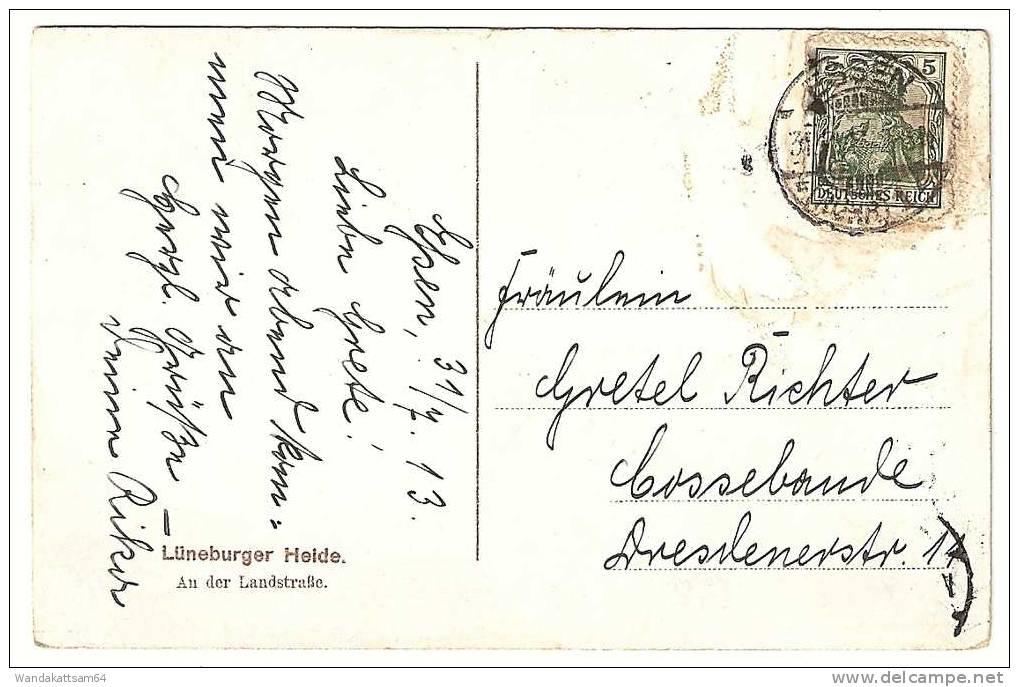 Essen, 31/7. 13.
Liebe Grete!
Morgen abend kom-
men wir an
Herzl. Grüße
Deine
Lüneburger Heide.
An der Landstraße.
5 5
DEUTSCHES REICH
ESSEN
Fräulein
Gretel Richter
Cossebaude
Dresdenerstr. 14
Wandakattsam64
delcampe.net